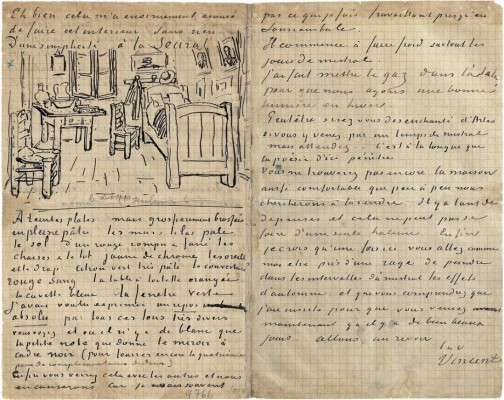 Eh bien cela m'a enormement amusé
de faire cet interieur sans rien
D'une simplicité à la Seurat
A teintes plates mais grossierement brossées
en pleine pâte les murs lilas pale
le sol d'un rouge rompu & fané les
chaises & le lit jaune de chrome les oreillers
et le drap citron vert très pâle la couverture
rouge sang la table à toilette orangée
la cuvette bleue la fenetre verte
j'avais voulu exprimer un repos
absolu par tous ces tons très divers
vous voyez et où il n'y a de blanc que
la petite note que donne le miroir à
cadre noir (pour fourrer encore la quatrième
paire de complementaires dedans)
Enfin vous verrez cela avec les autres et nous
en causerons car je ne sais souvent
pas ce que je fais travaillant presqu'en
somnambule.
Il commence à faire froid surtout les
jours de mistral.
J'ai fait mettre le gaz dans
pour que nous ayons une bonne
lumière en hiver.
Peutêtre serez vous desenchanté d'Arles
si vous y venez par un temps de mistral
mais attendez c'est à la longue que
la poësie d'ici pénètre
Vous ne trouverez pas encore la maison
aussi confortable que peu à peu nous
chercherons à la rendre. Il y a tant de
depenses et cela ne peut pas se
faire d'une seule haleine. Enfin
je crois qu'une fois ici vous allez comme
moi etre pris d'une rage de peindre
dans les intervalles du mistral les effets
d'automne et que vous comprendrez que
j'ai insisté pour que vous venez
maintenant qu'il y a de bien beaux
jours allons au revoir
t. à v.
Vincent